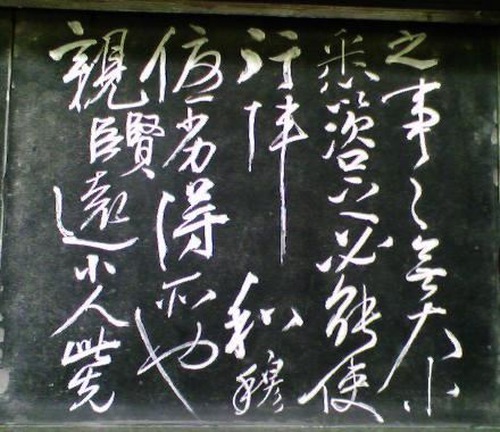 之事々無大小
悉以咨之必能使
行陣和穆
優劣得所也
親賢臣遠小人此先